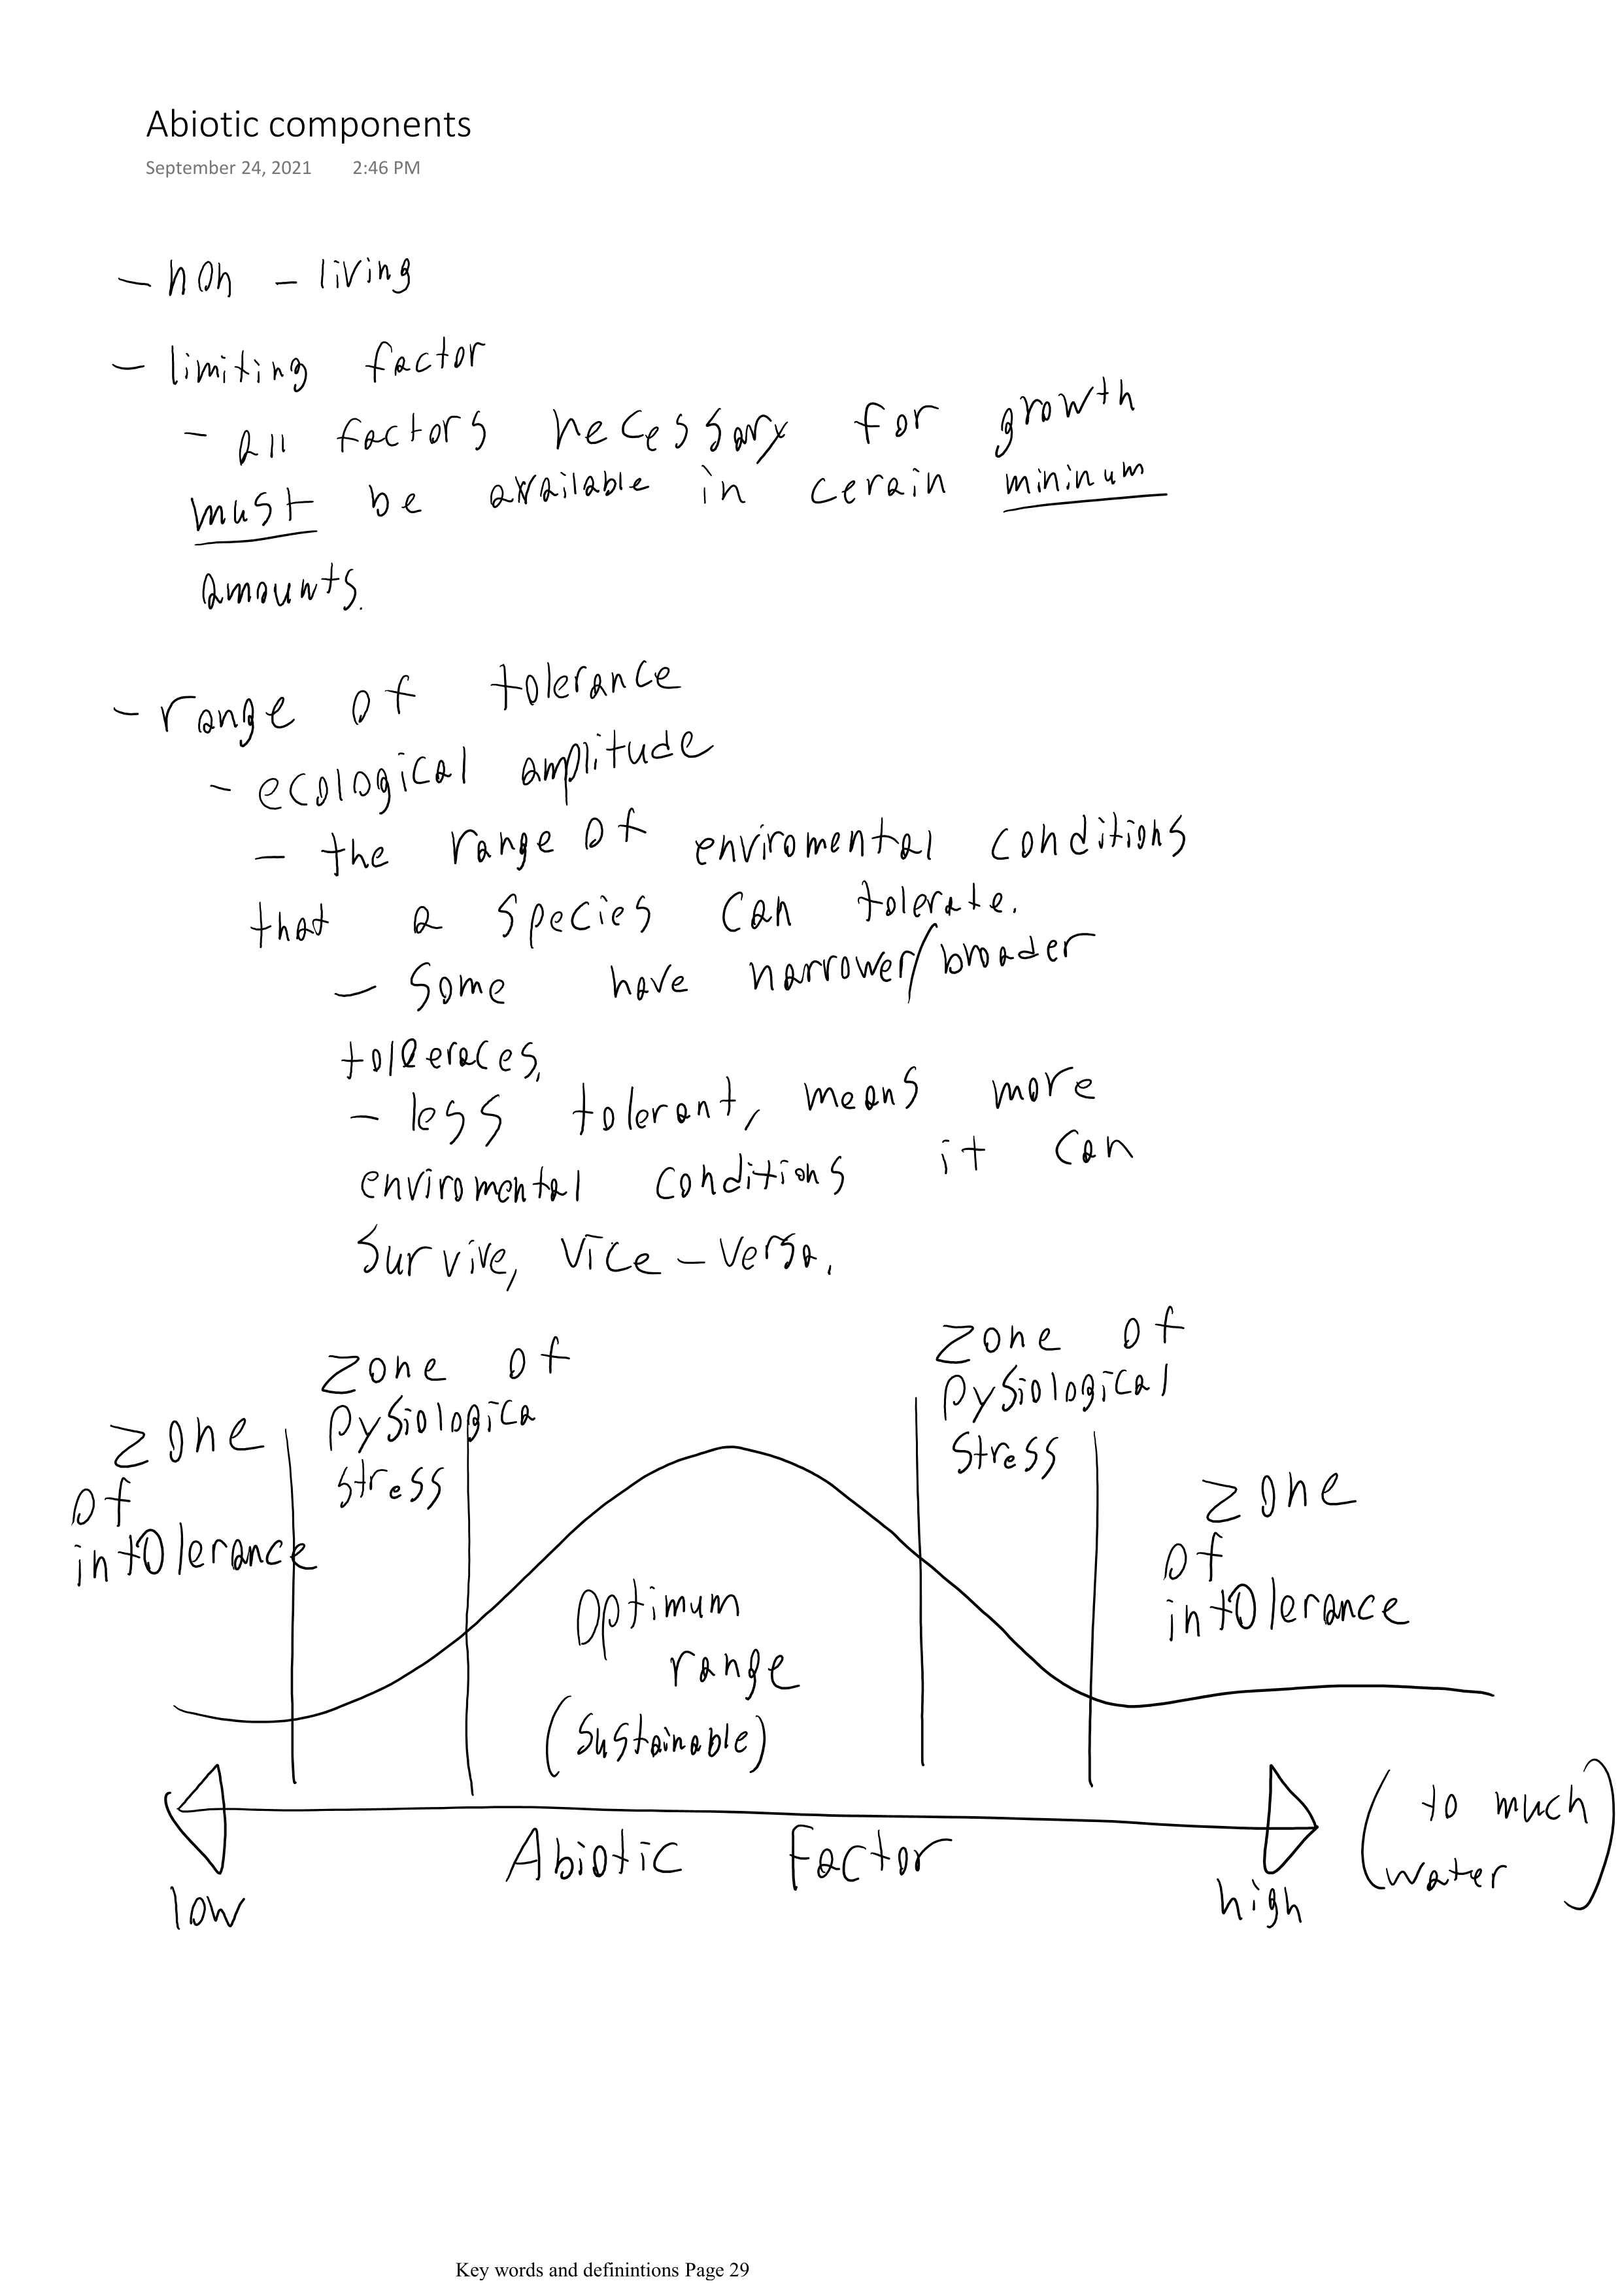 Abiotic components
September 24, 2021 2:46 PM
- non - living
- limiting factor
- all factors necessary for growth
must be available in cerain mininum
amounts.
- range of tolerance
- ecological amplitude
- the range of enviromental conditions
that a species can tolerate.
- Some have narrower/broader
toleraces,
- less tolerant, means more
enviromental conditions it can
survive, vice-versa.
zone of intolerance
zone of
pysiologica
stress
zone of
pysiological
stress
zone
of
intolerance
Optimum
range
(sustainable)
Abiotic factor
low
high
(to much
water)
Key words and definintions Page 29